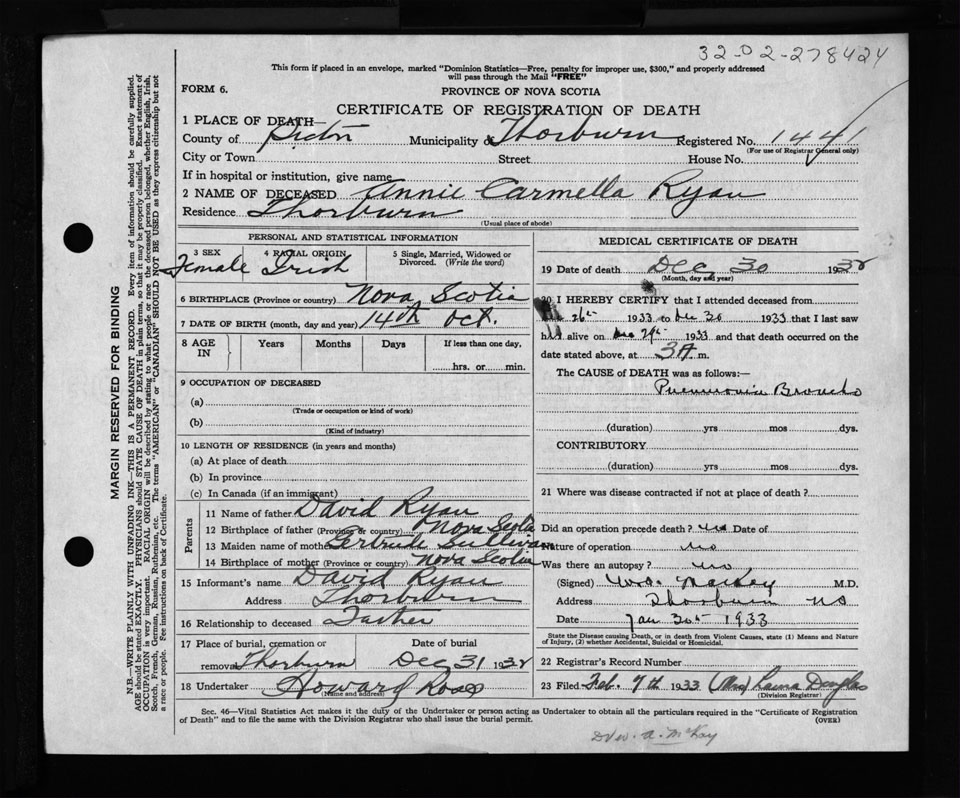 32-02-278424
This form if placed in an envelope, marked "Dominion Statistics—Free, penalty for improper use, $300," and properly addressed
will pass through the Mail "FREE"
FORM 6.
PROVINCE OF NOVA SCOTIA
CERTIFICATE OF REGISTRATION OF DEATH
1 PLACE OF DEATH—
County of Pictou Municipality of Thorburn Registered No. 1441
(For use of Registrar General only)
City or Town Street House No.
If in hospital or institution, give name
2 NAME OF DECEASED Annie Carmella Ryan
Residence Thorburn
(Usual place of abode)
PERSONAL AND STATISTICAL INFORMATION
3 SEX 4 RACIAL ORIGIN 5 Single, Married, Widowed or
Divorced. (Write the word)
Female Irish
6 BIRTHPLACE (Province or country) Nova Scotia
7 DATE OF BIRTH (month, day and year) 14th Oct.
8 AGE IN Years Months Days If less than one day,
hrs. or min.
9 OCCUPATION OF DECEASED
(a)
(Trade or occupation or kind of work)
(b)
(Kind of industry)
10 LENGTH OF RESIDENCE (in years and months)
(a) At place of death
(b) In province
(c) In Canada (if an immigrant)
Parents
11 Name of father David Ryan
12 Birthplace of father (Province or country) Nova Scotia
13 Maiden name of mother Gertrude Sullivan
14 Birthplace of mother (Province or country) Nova Scotia
15 Informant's name David Ryan
Address Thorburn
16 Relationship to deceased Father
17 Place of burial, cremation or Date of burial
removal Thorburn Dec 31 1932
18 Undertaker Howard Ross
(Name and address)
MEDICAL CERTIFICATE OF DEATH
19 Date of death Dec 30 1932
(Month, day and year)
20 I HEREBY CERTIFY that I attended deceased from
26th 1933 to Dec 30 1933 that I last saw
h alive on Dec 29th 1933 and that death occurred on the
date stated above, at 3 A m.
The CAUSE of DEATH was as follows:—
Pneumonia Broncho
(duration) yrs mos dys.
CONTRIBUTORY
(duration) yrs mos dys.
21 Where was disease contracted if not at place of death?
Did an operation precede death? no Date of
Nature of operation no
Was there an autopsy? no
(Signed) M.D.
Address Thorburn NS
Date Jan 30th 1933
State the Disease causing Death, or in death from Violent Causes, state (1) Means and Nature
of Injury, (2) whether Accidental, Suicidal or Homicidal.
22 Registrar's Record Number
23 Filed Feb. 7th 1933 (Mrs) Douglas
(Division Registrar)
Sec. 46—Vital Statistics Act makes it the duty of the Undertaker or person acting as Undertaker to obtain all the particulars required in the "Certificate of Registration
of Death" and to file the same with the Division Registrar who shall issue the burial permit.
(OVER)
A. McKay
MARGIN RESERVED FOR BINDING
N.B.—WRITE PLAINLY WITH UNFADING INK—THIS IS A PERMANENT RECORD. Every item of information should be carefully supplied.
AGE should be stated EXACTLY. PHYSICIANS should STATE CAUSE OF DEATH in plain terms, so that it may be properly classified. Exact statement of
OCCUPATION is very important. RACIAL ORIGIN will be described by stating to what people or race the deceased person belonged, whether English, Irish,
Scotch, French, German, Russian, Ruthenian, etc. The terms "AMERICAN" or "CANADIAN" SHOULD NOT BE USED as they express citizenship but not
a race or people. Fee instructions on back of Certificate.